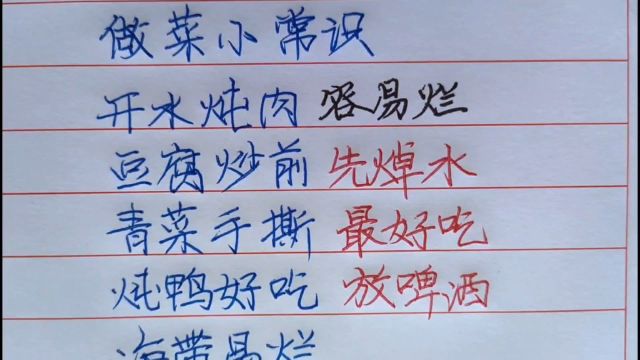 做菜小常识
开水炖肉 容易烂
豆腐炒前 先焯水
青菜手撕 最好吃
炖鸭好吃 放啤酒
海带易烂